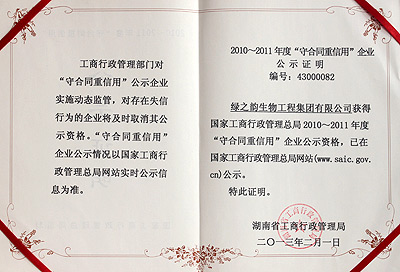 工商行政管理部门对
“守合同重信用”公示企业
实施动态监管，对存在失信
行为的企业将及时取消其公
示资格。“守合同重信用”
企业公示情况以国家工商行
政管理总局网站实时公示信
息为准。
2010～2011年度“守合同重信用”企业
公示证明
编号：43000082
绿之韵生物工程集团有限公司获得
国家工商行政管理总局2010～2011年度
“守合同重信用”企业公示资格，已在
国家工商行政管理总局网站(www.saic.gov.
cn)公示。
特此证明。
湖南省工商行政管理局
二〇一三年二月一日